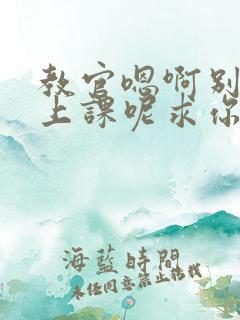 教官嗯啊别
上課呢求你
海藍時間
未经同意禁止转载